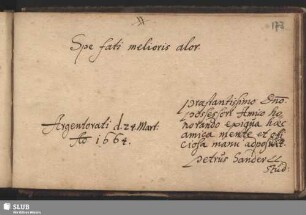 173
Spe fati melioris alor
Argentorati d. 24 Mart.
Ao 1664.
præstantissimo Dno
possessori Amico ho-
norando exigua hæc
amica mente et offi
ciosa manu adposuit
petrus Sander
Stud.
SLUB